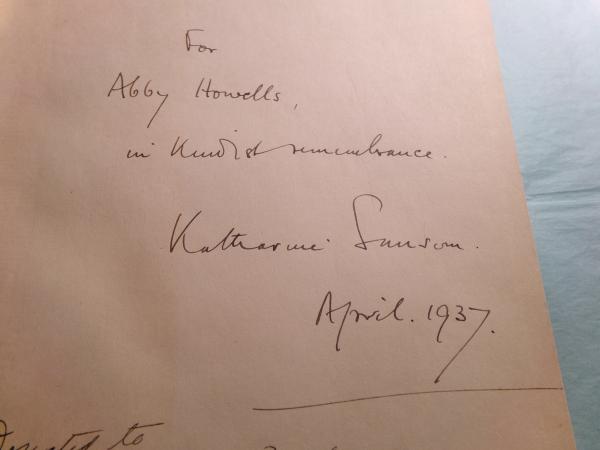 For
Abby Howells,
in kindest remembrance.
Katharine Sansom.
April. 1937.
to